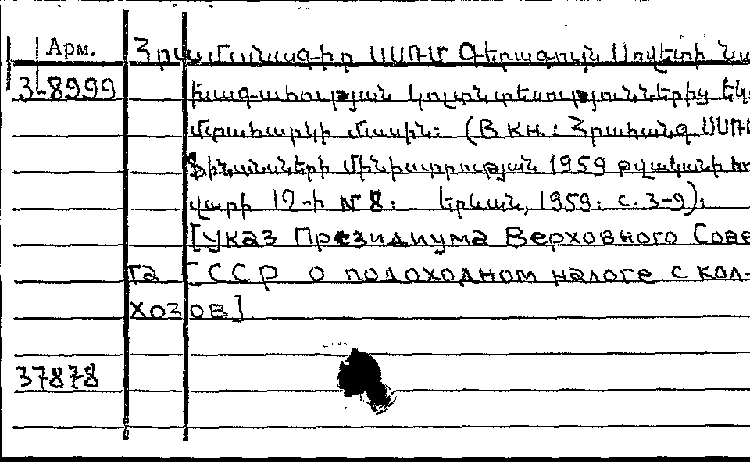 Арм. Հրամանագիր ՍՍՌՄ Գերագույն Սովետի Նա
3-8999 խագահության կոլտնտեսություններից եկ
մտահարկի մասին: (В кн.: Հրահանգ ՍՍՌՄ
Ֆինանսների Մինիստրության 1959 թվականի հո
վարի 12-ի № 8: Երևան, 1959. с. 3-9):
[Указ Президиума Верховного Сове-
та СССР о подоходном налоге с кол-
хозов]
37878